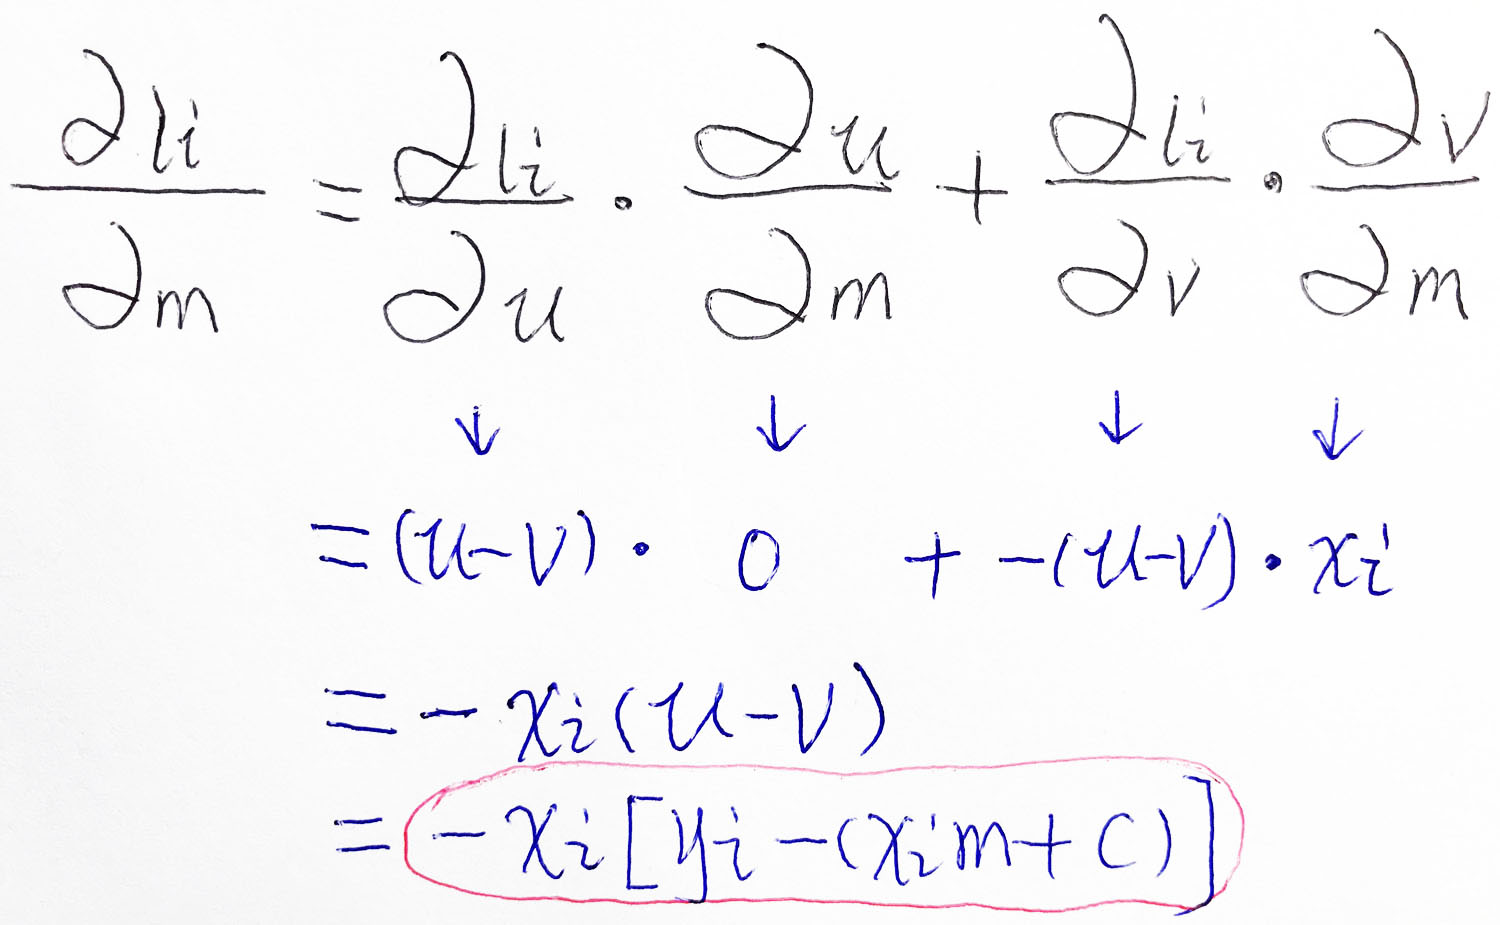 ∂li/∂m = ∂li/∂u · ∂u/∂m + ∂li/∂v · ∂v/∂m
↓ ↓ ↓ ↓
= (u-v) · 0 + -(u-v) · xi
= - xi (u-v)
= - xi [yi - (xim + c)]